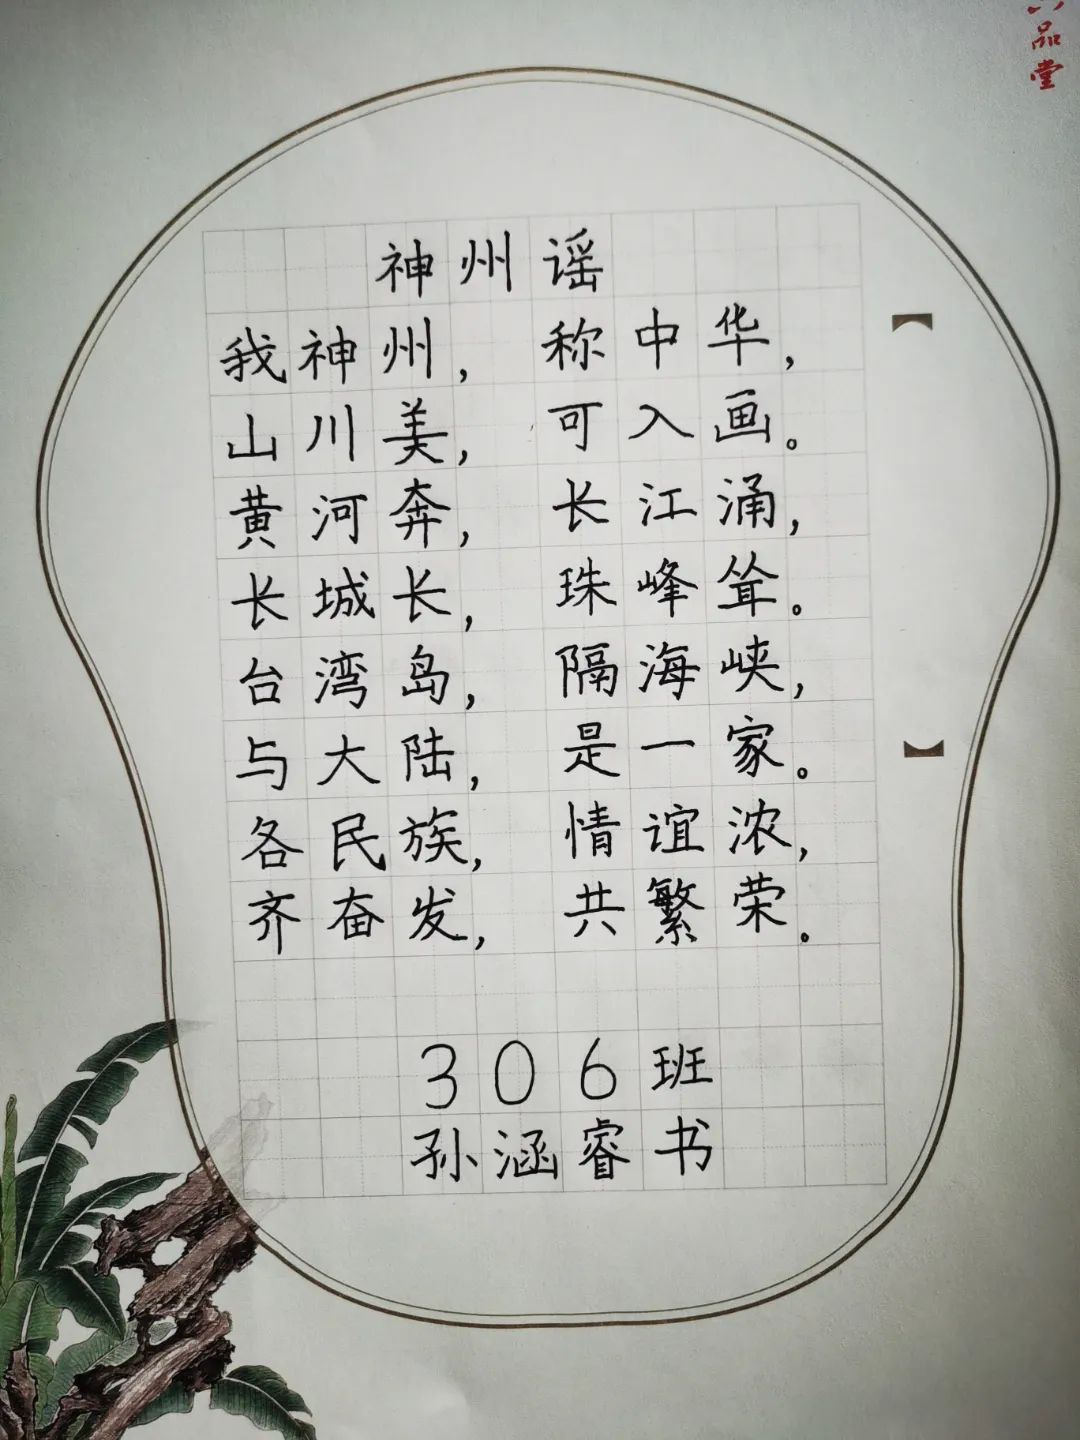 品堂
神州谣
我神州，称中华，
山川美，可入画。
黄河奔，长江涌，
长城长，珠峰耸。
台湾岛，隔海峡，
与大陆，是一家。
各民族，情谊浓，
齐奋发，共繁荣。
306班
孙涵睿书